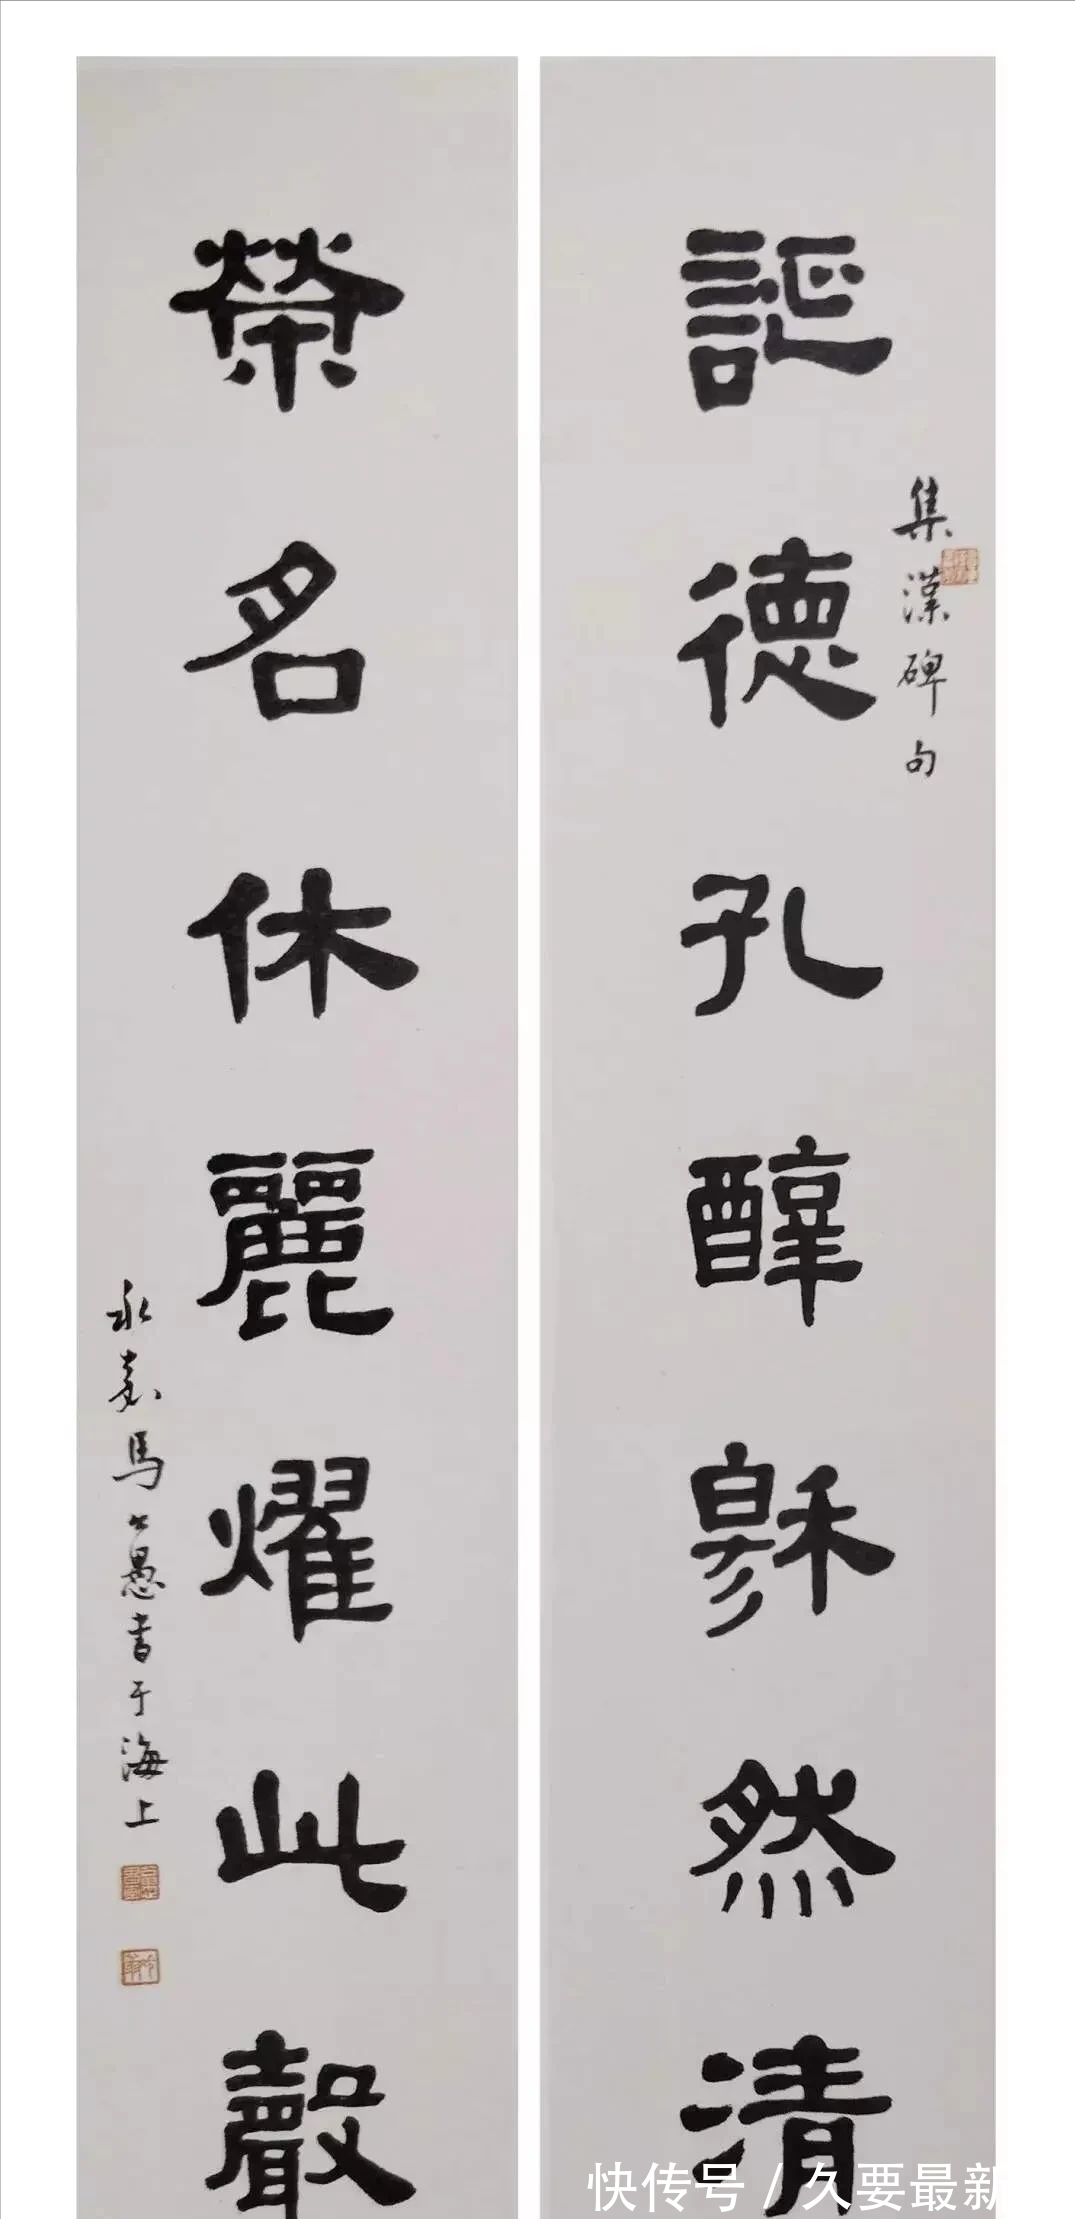 誕德孔醇穆然清
集漢碑句
榮名休麗燿此聲
永嘉馬公愚書于海上
快传号 / 久要最新